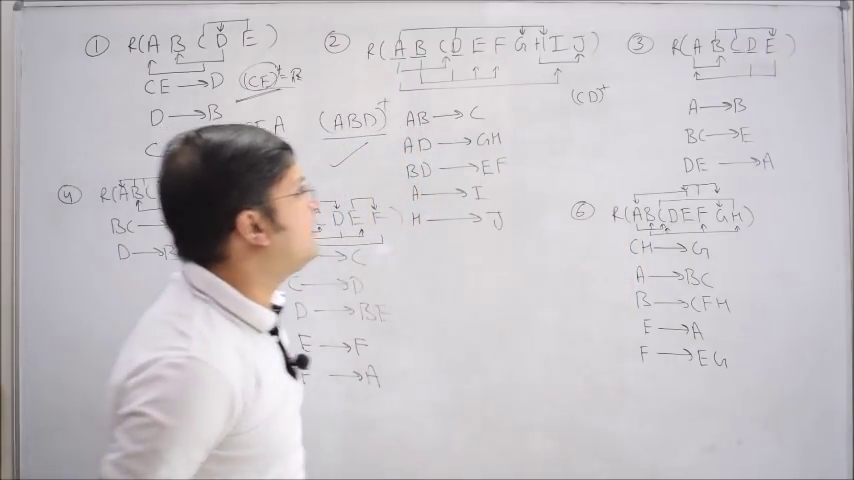 ① R(A B C D E)
CE → D
(CE)⁺ = R
D → B
C
A
② R(A B C D E F G H I J)
(ABD)⁺
AB → C
AD → GH
BD → EF
A → I
H → J
③ R(A B C D E)
(CD)⁺
A → B
BC → E
DE → A
④ R(A B C
BC
D → B
D E F)
→ C
C → D
D → BE
E → F
F → A
⑥ R(A B C D E F G H)
CH → G
A → BC
B → CFH
E → A
F → EG